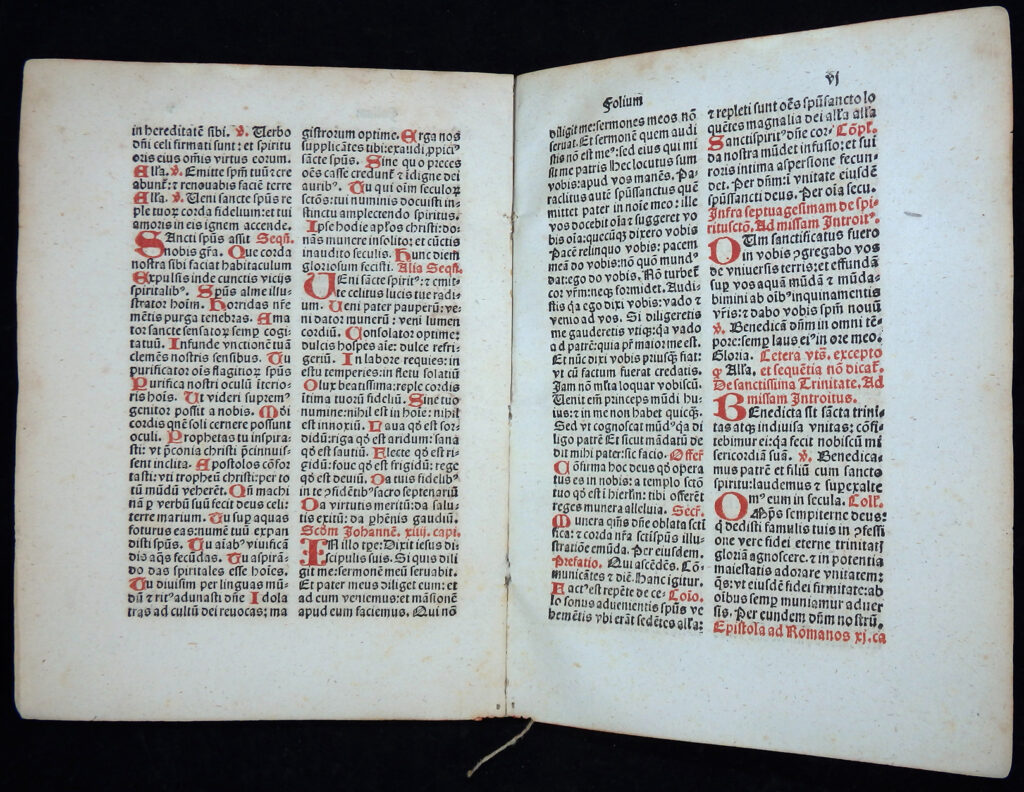 in hereditatē sibi. ꝟ. Uerbo
dn̄i celi firmati sunt: et spiritu
oris eius om̄is virtus eorum.
Alł'a. ꝟ. Emitte spm̄ tuū ⁊ cre
abunt̄: ⁊ renouabis faciē terre
Alł'a. ꝟ. Veni sancte spūs re
ple tuoꝝ corda fidelium: et tui
amoris in eis ignem accende.
Sancti spūs assit Seqn̄.
nobis gr̄a. Que corda
nostra sibi faciat habitaculum
Expulsis inde cunctis vicijs
spiritalibꝰ. Spūs alme illu-
strator hoīm. Horridas nr̄e
mētis purga tenebras. Ama
tor sancte sensatoꝝ semꝑ cogi
tatuū. Infunde vnctionē tuā
clemēs nostris sensibus. Tu
purificator oīs flagitioꝝ spūs
Purifica nostri oculū iterio-
ris hoīs. Ut videri supremꝰ
genitor possit a nobis. Mūdi
cordis quē soli cernere possunt
oculi. Prophetas tu inspira-
sti: vt p̄conia christi p̄cinnuis-
sent inclita. Apostolos cōfor
tasti: vti tropheū christi: per to
tū mūdū veherēt. Qn̄ machi
nā ꝑ verbū suū fecit deus celi:
terre marium. Tu suꝑ aquas
foturus eas: numē tuū expan
disti spūs. Tu aīabꝰ viuificā
dis aq̄s fecūdas. Tu aspirā-
do das spiritales esse hoīes.
Tu diuisim per linguas mū-
dū ⁊ ritꝰ adunasti dn̄e Idola
tras ad cultū dei reuocas: ma
gistrorum optime. Erga nos
supplicātes tibi: exaudi, ppiciꝰ
sācte spūs. Sine quo preces
oēs casse credunt̄ ⁊ īdigne dei
auribꝰ. Tu qui oīm seculoꝝ
sctōs: tui numinis docuisti in-
stinctu amplectendo spiritus.
Ipse hodie apl̄os christi: do-
nās munere insolito: et cūctis
inaudito seculis. Hunc diem
gloriosum fecisti. Alia Seqn̄.
Veni sācte spiritꝰ: ⁊ emit-
te celitus lucis tue radi
um. Ueni pater pauperū: ve-
ni dator munerū: veni lumen
cordiū. Consolator optime:
dulcis hospes aīe: dulce refri-
geriū. In labore requies: in
estu temperies: in fletu solatiū
O lux beatissima: reple cordis
ītima tuorū fidelū. Sine tuo
numine: nihil est in hoīe: nihil
est innoxiū. Laua qd̄ est sor-
didū: riga qd̄ est aridum: sana
qd̄ est sautiū. Flecte qd̄ est ri-
gidū: foue qd̄ est frigidū: rege
qd̄ est deuiū. Da tuis fidelibꝰ
in te ꝯfidētibꝰ sacro septenariū
Da virtutis meritū: da salu-
tis exitū: da ꝑhēnis gaudiū.
Scdm̄ Johannē. xiiij. capi.
In illo tp̄e: Dixit iesus di-
scipulis suis. Si quis dili
git me: sermonē meū seruabit.
Et pater meus diliget eum: et
ad eum veniemus: et māsionē
apud eum faciemus. Qui nō
Folium
vj
diligit me: sermones meos nō
seruat. Et sermonē quem audi
stis nō est meꝰ: sed eius qui mi
sit me patris Hec locutus sum
vobis: apud vos manēs. Pa-
raclitus autē spūssanctus quē
mittet pater in noīe meo: ille
vos docebit oīa ⁊ suggeret vo
bis oīa: quecūqꝫ dixero vobis
Pacē relinquo vobis: pacem
meā do vobis: nō quē mundꝰ
dat: ego do vobis. Nō turbet̄
cor vr̄m: necqꝫ formidet. Audi-
stis q̄a ego dixi vobis: vado ⁊
venio ad vos. Si diligeretis
me gauderetis vtiqꝫ: q̄a vado
ad patrē: quia p̄r maior me est.
Et nūc dixi vobis priusqꝫ fiat:
vt cū factum fuerat credatis.
Jam nō m̄lta loquar vobiscū.
Uenit em̄ princeps mūdi hu-
ius: ⁊ in me non habet quicqꝫ.
Sed vt cognoscat mūdꝰ q̄a di
ligo patrē Et sicut mādatū de
dit mihi pater: sic facio. Offert̄
Cōfirma hoc deus qd̄ opera
tus es in nobis: a templo sctō
tuo qd̄ est ī hierl̄m: tibi offerēt
reges munera alleluia. Secr̄.
Munera qs̄ dn̄e oblata sctī
fica: ⁊ corda nr̄a sctī spūs illu-
stratiōe emūda. Per eiusdem.
Prefatio. Qui ascēdēs. Cō-
municātes ⁊ diē. Hanc igitur.
Factꝰ est repēte de ce- Cōio.
lo sonus aduenientis spūs ve
hemētis vbi erāt sedētes all'a:
⁊ repleti sunt oēs spū sancto lo
quētes magnalia dei all'a all'a
Sancti spiritꝰ dn̄e cor- Cōpl̄.
da nostra mūdet infusio: et sui
roris intima aspersione fecun-
det. Per dn̄m: ī vnitate eiusdē
spūssancti deus. Per oīa secu.
Infra septuagesimam de spi-
ritu sctō. Ad missam Introitꝰ.
Dum sanctificatus fuero
in vobis ꝯgregabo vos
de vniuersis terris: et effundā
suꝑ vos aquā mūdā ⁊ mūda-
bimini ab oībꝰ inquinamentis
vr̄is: ⁊ dabo vobis spm̄ nouū
ꝟ. Benedicā dn̄m in omni tē-
pore: semꝑ laus eiꝰ in ore meo
Gloria. Cetera vts̄. excepto
ꝙ All'a. et sequētia nō dicāt̄.
De sanctissima Trinitate. Ad
missam Introitus.
Benedicta sit sācta trini
tas atqꝫ indiuisa vnitas: cō
fitebimur ei: q̄a fecit nobiscū mi
sericordiā suā. ꝟ. Benedica-
mus patrē et filiū cum sancto
spiritu: laudemus ⁊ suꝑexalte
mꝰ eum in secula. Coll̄.
Omp̄s sempiterne deus:
q̄ dedisti famulis tuis in ꝯfessi
one vere fidei eterne trinitatꝭ
gloriā agnoscere. ⁊ in potentia
maiestatis adorare vnitatem:
qs̄: vt eiusdē fidei firmitate: ab
oībus semꝑ muniamur aduer
sis. Per eundem dn̄m nostrū.
Epistola ad Romanos xj. ca